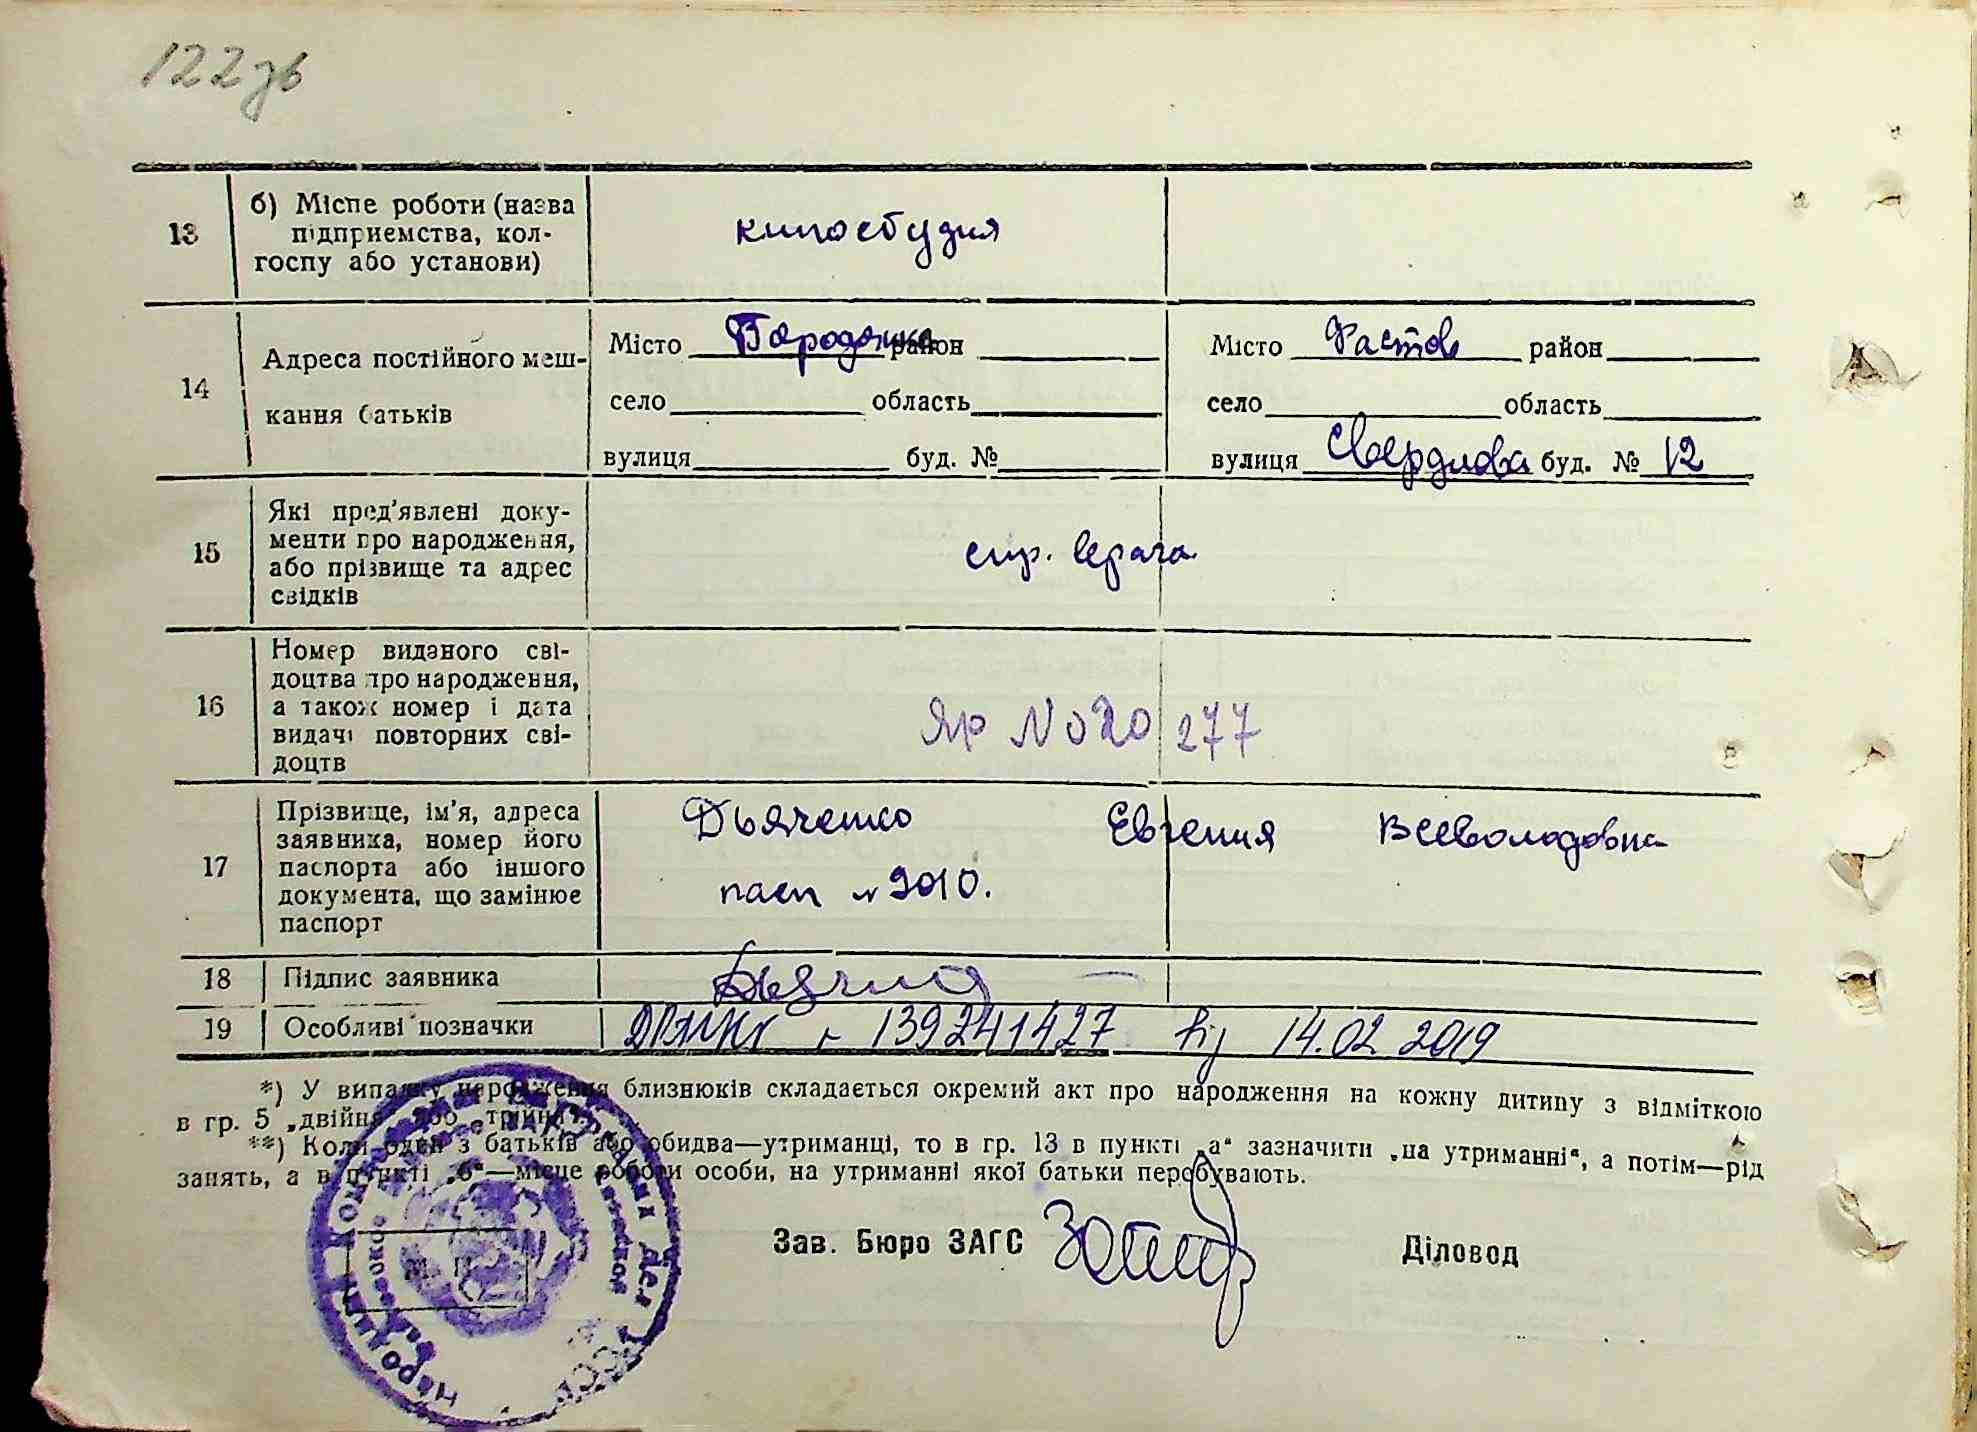 122зв
13
б) Місце роботи (назва
підприємства, кол-
госпу або установи)
киностудия
14
Адреса постійного меш-
кання батьків
Місто Бородянка район
село область
вулиця буд. №
Місто Фастов район
село область
вулиця Свердлова буд. № 12
15
Які пред'явлені доку-
менти про народження,
або прізвище та адрес
свідків
спр. врача
16
Номер виданого сві-
доцтва про народження,
а також номер і дата
видачі повторних сві-
доцтв
ЯР № 020277
17
Прізвище, ім'я, адреса
заявника, номер його
паспорта або іншого
документа, що замінює
паспорт
Дьяченко Евгения Всеволодовна
пасп № 9010.
18
Підпис заявника
19
Особливі позначки
139241427 від 14.02 2019
*) У випадку народження близнюків складається окремий акт про народження на кожну дитину з відміткою
в гр. 5 „двійня“ або „трійня“.
**) Коли один з батьків або обидва—утриманці, то в гр. 13 в пункті „а“ зазначити „на утриманні“, а потім—рід
занять, а в пункті „б“—місце роботи особи, на утриманні якої батьки перебувають.
Зав. Бюро ЗАГС
Діловод